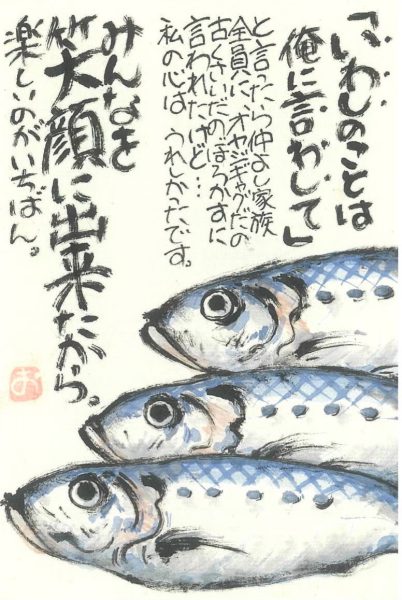 「いわしのことは
俺に言わして」
と言ったら仲よし家族
全員に、オヤジギャグだの
古くさいだのぼろかすに
言われたけど…
私の心は うれしかったです。
みんなを
笑顔に出来たから。
楽しいのがいちばん。
お